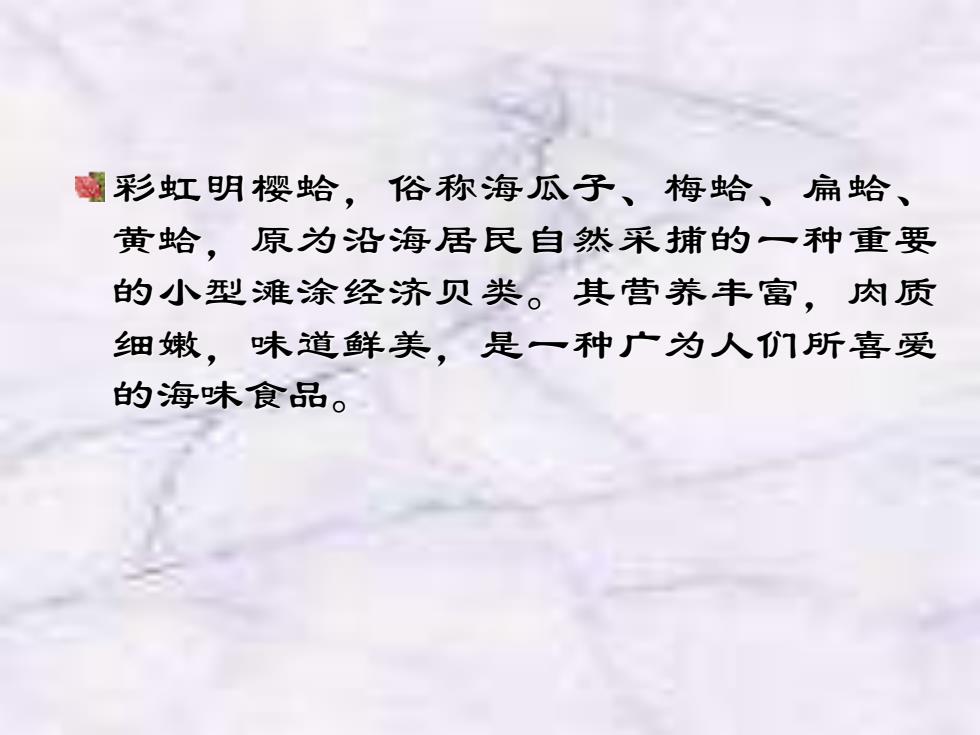 彩虹明樱蛤，俗称海瓜子、梅蛤、扁蛤、
黄蛤，原为沿海居民自然采捕的一种重要
的小型滩涂经济贝类。其营养丰富，肉质
细嫩，味道鲜美，是一种广为人们所喜爱
的海味食品。